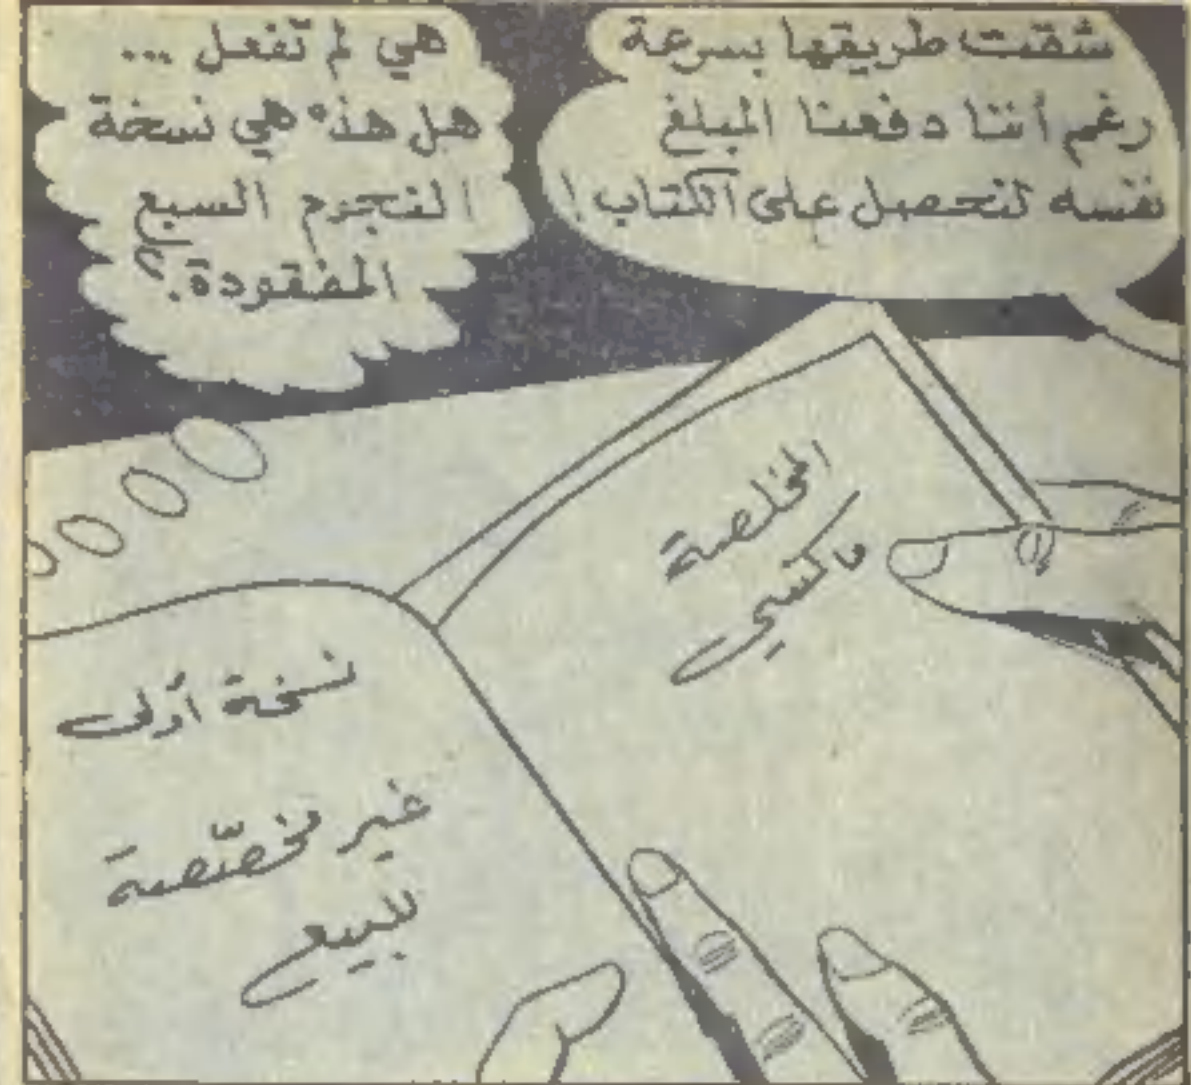 شقت طريقها بسرعة
رغم أننا دفعنا المبلغ
نفسه لنحصل على الكتاب!
هي لم تفعل ...
هل هذه هي نسخة
النجوم السبع
المفقودة؟
المخلصة
ماكنسي
نسخة أولى
غير مخصّصة
للبيع